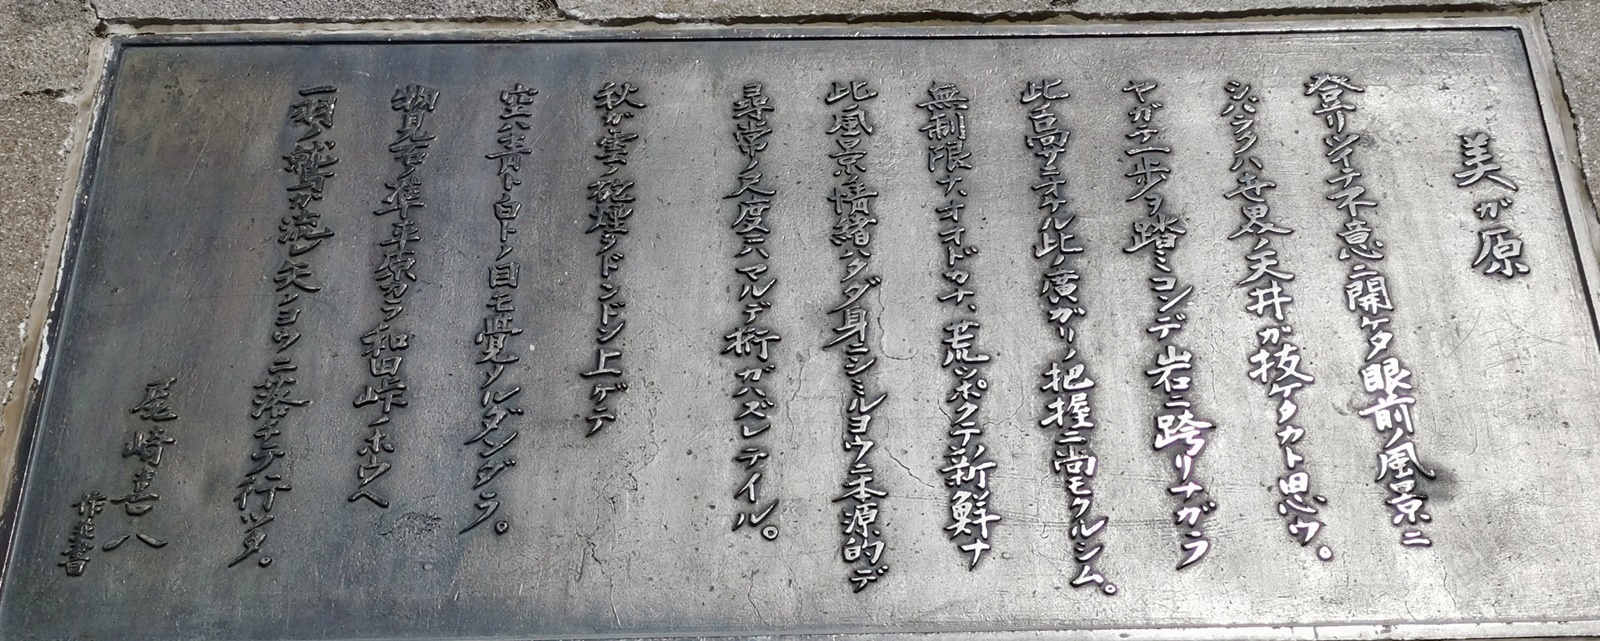 美が原
登リツイテ不意ニ開ケタ眼前ノ風景ニ
シバラクハ世界ノ天井ガ抜ケタカト思ウ。
ヤガテ一歩ヲ踏ミコンデ岩ニ跨リナガラ
此ノ高サニオケル此ノ廣ガリノ把握ニ尚モクルシム。
無制限ナ、オオドカナ、荒ッポクテ新鮮ナ
此ノ風景ノ情緒ハタダ身ニシミルヨウニ本源的デ
尋常ノ尺度ニハマルデ桁ガハズレテイル。
秋ガ雲ノ砲煙ヲドンドン上ゲテ
空ハ青ト白トノ目モ覚メルダンダラ。
物見石ノ準平原カラ和田峠ノホウヘ
一羽ノ鷲ガ流レ矢ノヨウニ落チテ行ッタ。
尾崎喜八
作並書